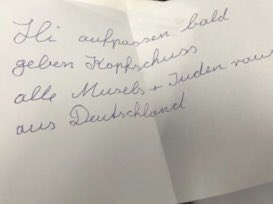 Hi aufpassen bald
geben Kopfschuss
alle Musels + Juden raus
aus Deutschland